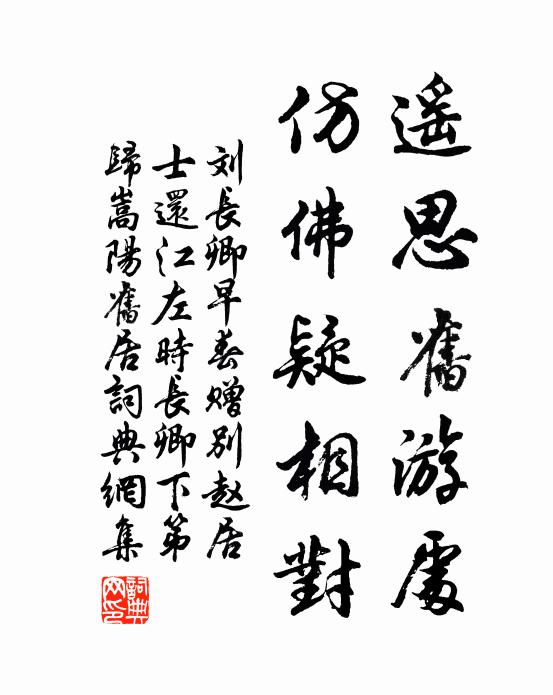 遥思舊游處
仿佛疑相對
刘長卿早春赠别赵居
士還江左時長卿下第
歸嵩陽舊居詞典網集
詞典網印